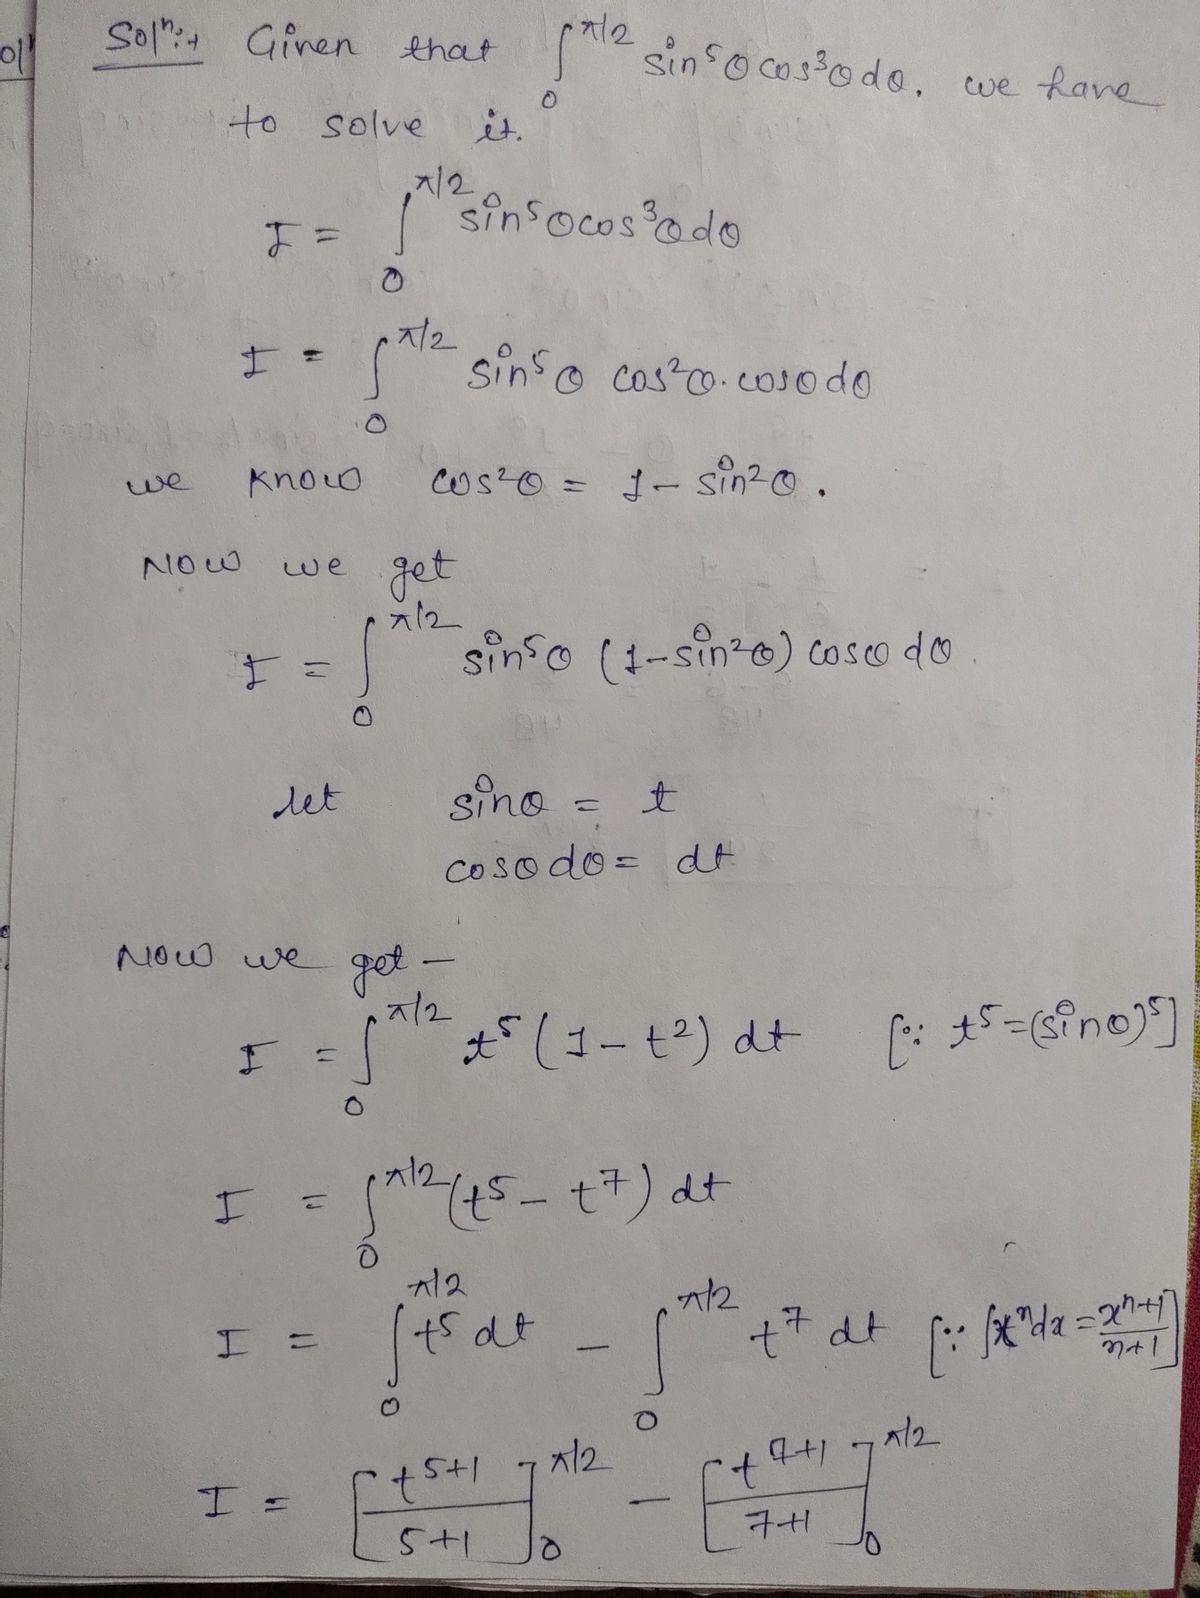 Solⁿ:→ Given that ∫₀^π/2 sin⁵θ cos³θ dθ, we have
to solve it.
I = ∫₀^π/2 sin⁵θ cos³θ dθ
I = ∫₀^π/2 sin⁵θ cos²θ · cosθ dθ
we know cos²θ = 1 - sin²θ.
Now we get
I = ∫₀^π/2 sin⁵θ (1 - sin²θ) cosθ dθ
let sinθ = t
cosθ dθ = dt
Now we get -
I = ∫₀^π/2 t⁵ (1 - t²) dt [∵ t⁵ = (sinθ)⁵]
I = ∫₀^π/2 (t⁵ - t⁷) dt
I = ∫₀^π/2 t⁵ dt - ∫₀^π/2 t⁷ dt [∵ ∫xⁿdx = xⁿ⁺¹/n+1]
I = [t⁵⁺¹/5+1]₀^π/2 - [t⁷⁺¹/7+1]₀^π/2